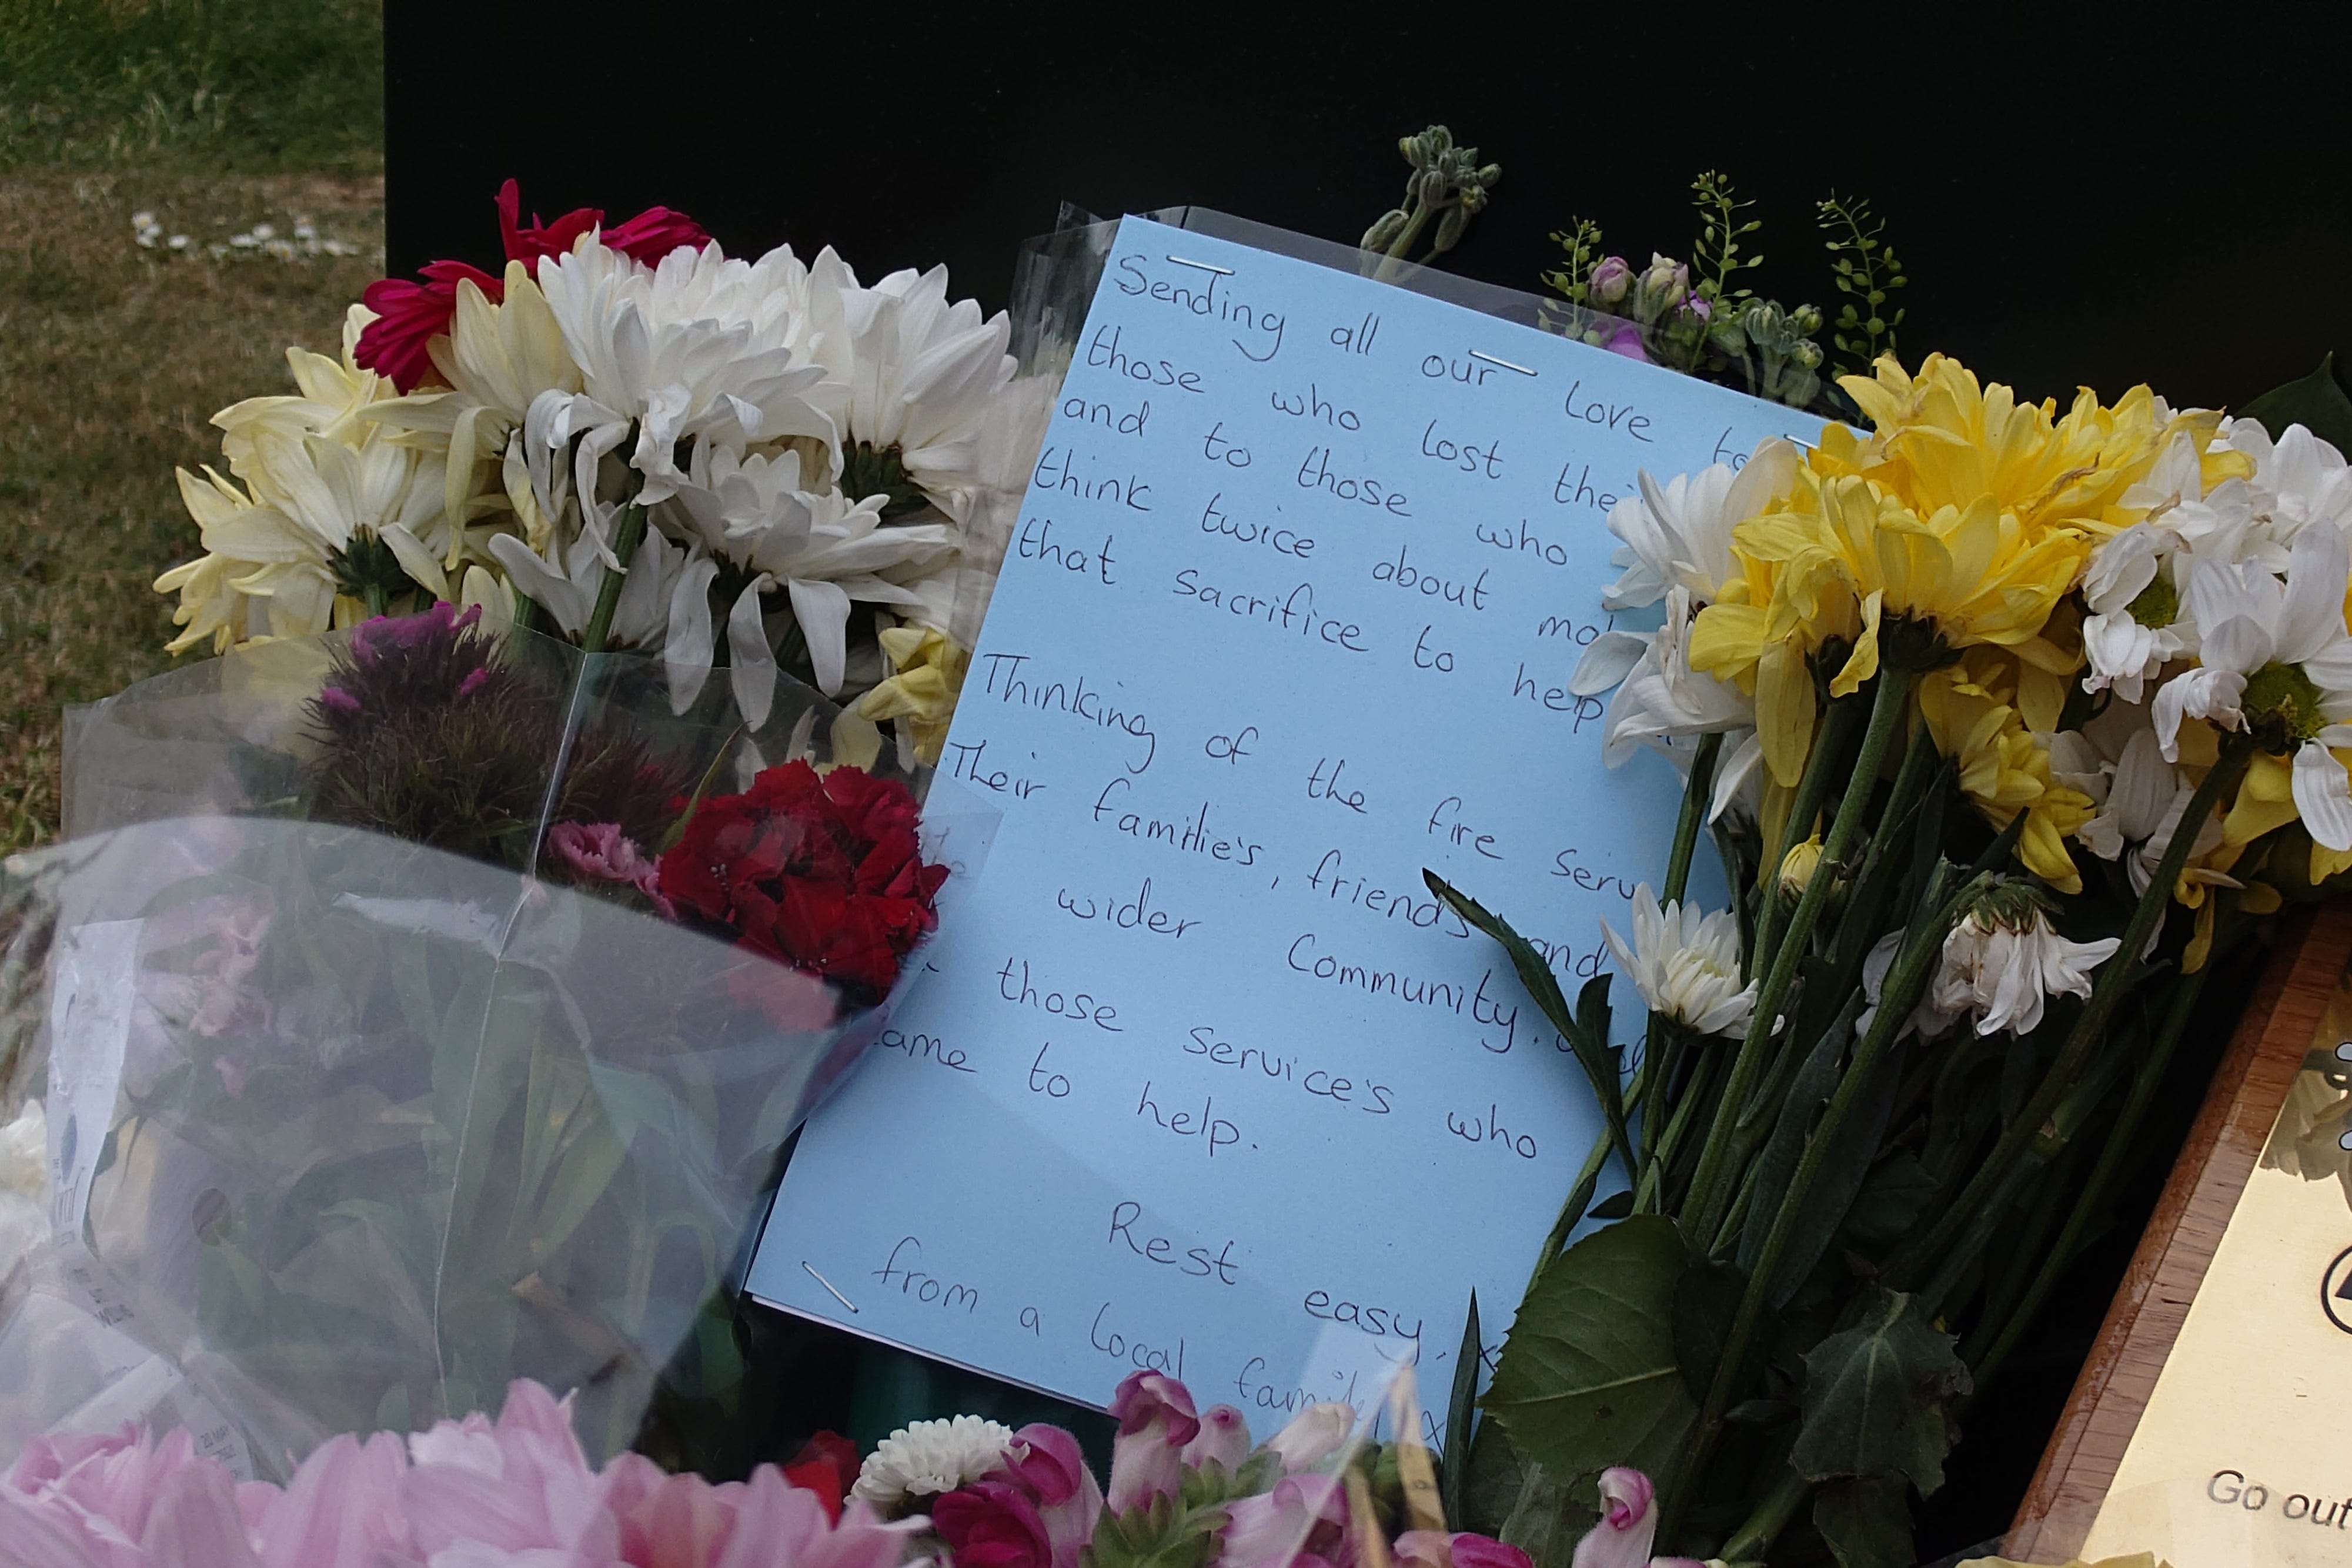 Sending all our love to
those who lost
and to those who
think twice about
that sacrifice to help
Thinking of the fire
Their familie's, friends and
wider Community.
those service's who
to help.
Rest easy. x
from a local family x
Go out